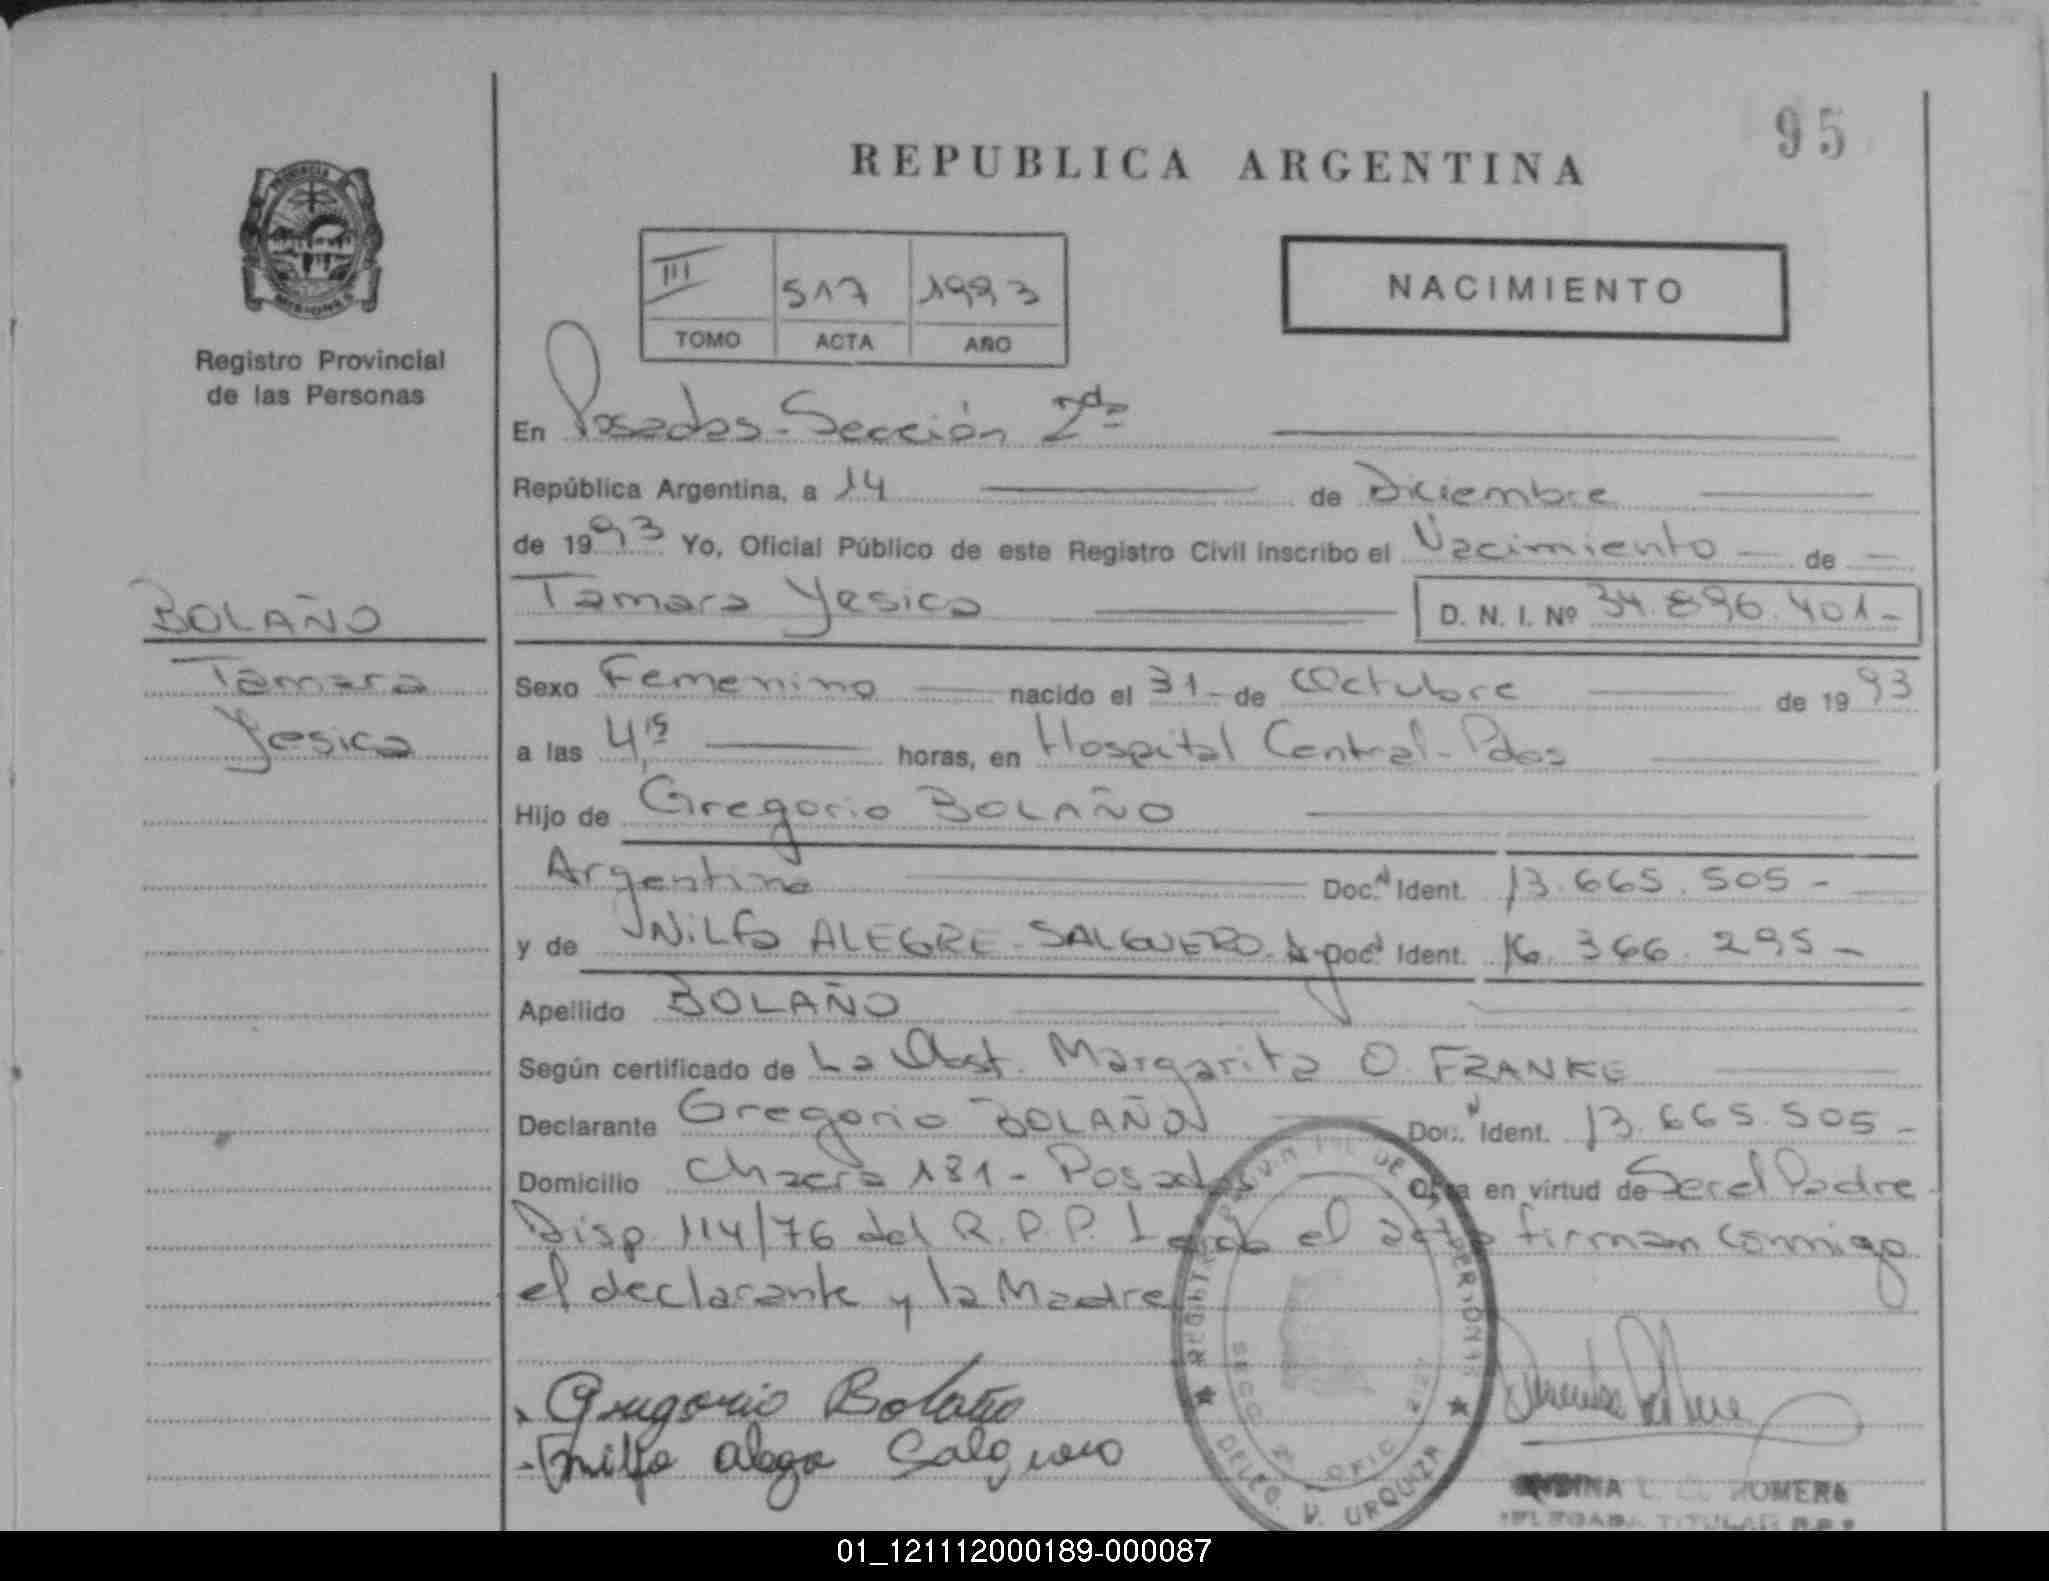 95
REPUBLICA ARGENTINA
PROVINCIA
MISIONES
Registro Provincial
de las Personas
III 517 1993
TOMO ACTA AÑO
NACIMIENTO
En Posadas - Sección 2da
República Argentina, a 14 de Diciembre
de 1993 Yo, Oficial Público de este Registro Civil inscribo el Nacimiento de
BOLAÑO
Tamara Yesica D. N. I. Nº 34.896.401-
Tamara
Sexo Femenino nacido el 31 - de Octubre de 1993
Yesica
a las 4,15 horas, en Hospital Central - Pdas
Hijo de Gregorio BOLAÑO
Argentino Doc. N Ident. 13.665.505 -
y de NiLFa ALEGRE - SALGUERO. A- Doc. Ident. 16.366.295 -
Apellido BOLAÑO
Según certificado de La Obst. Margarita O. FRANKE
Declarante Gregorio BOLAÑO Doc. N Ident. 13.665.505 -
Domicilio Chacra 181 - Posadas Obra en virtud de Ser el Padre
Disp. 114/76 del R.P.P. Leida el acta firman conmigo
el declarante y la Madre
Gregorio Bolaño
nilfa alegre Salguero
REGISTRO PROVINCIAL DE LAS PERSONAS
SECC. 2ª OFIC.
DELEG. V. URQUIZA
ROMERO
DELEGADA TITULAR R.P.P.
01_121112000189-000087